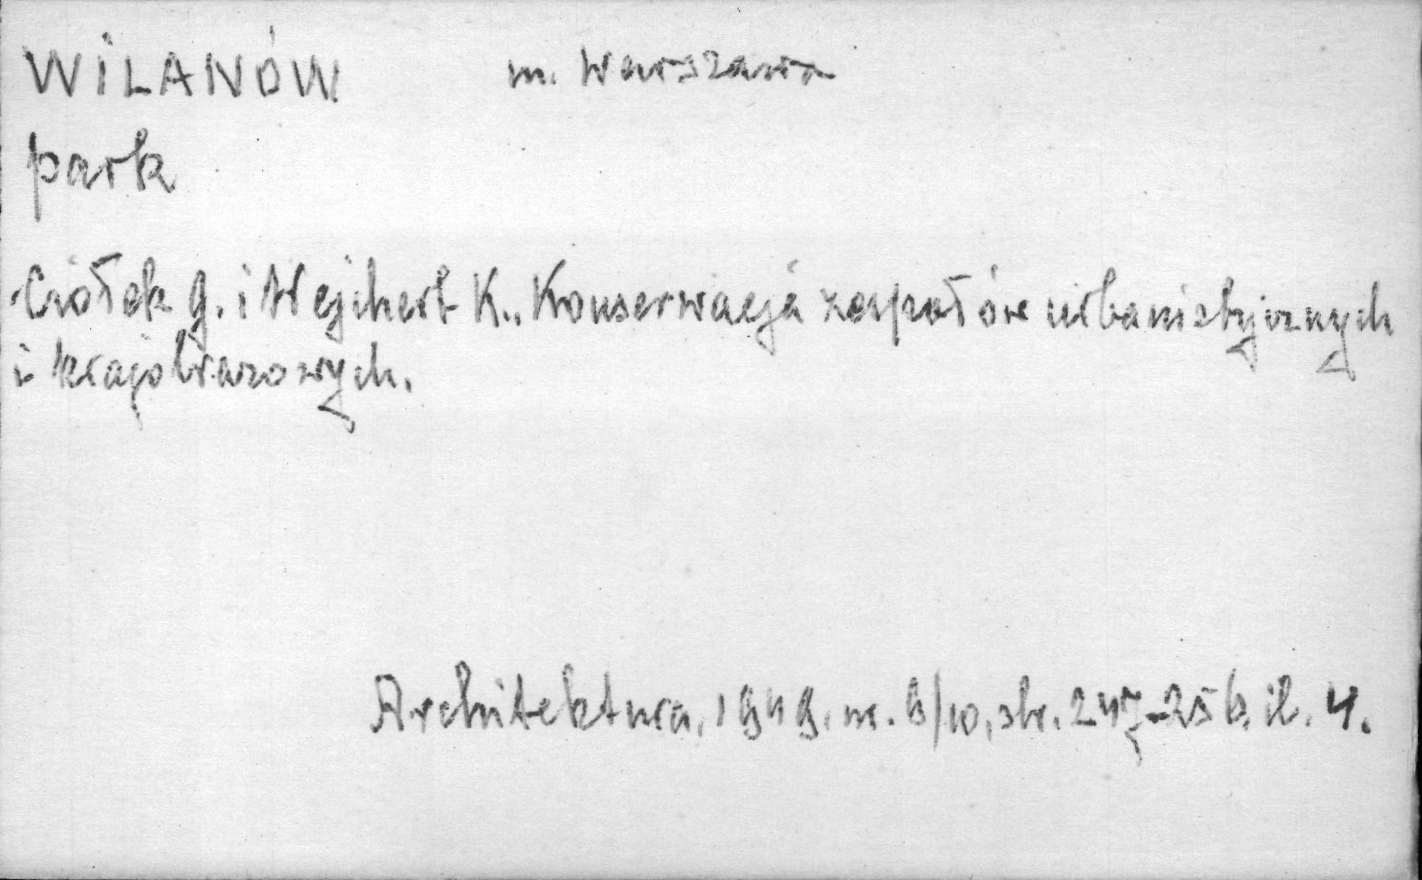 WILANÓW m. Warszawa
park
Ciołek G. i Wejchert K., Konserwacja zespołów urbanistycznych
i krajobrazowych.
Architektura, 1949, nr. 8/10, str. 247-256, il. 4.